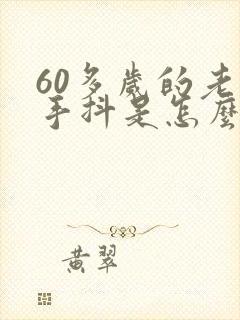 60多歲的老
手抖是怎麼
黃翠